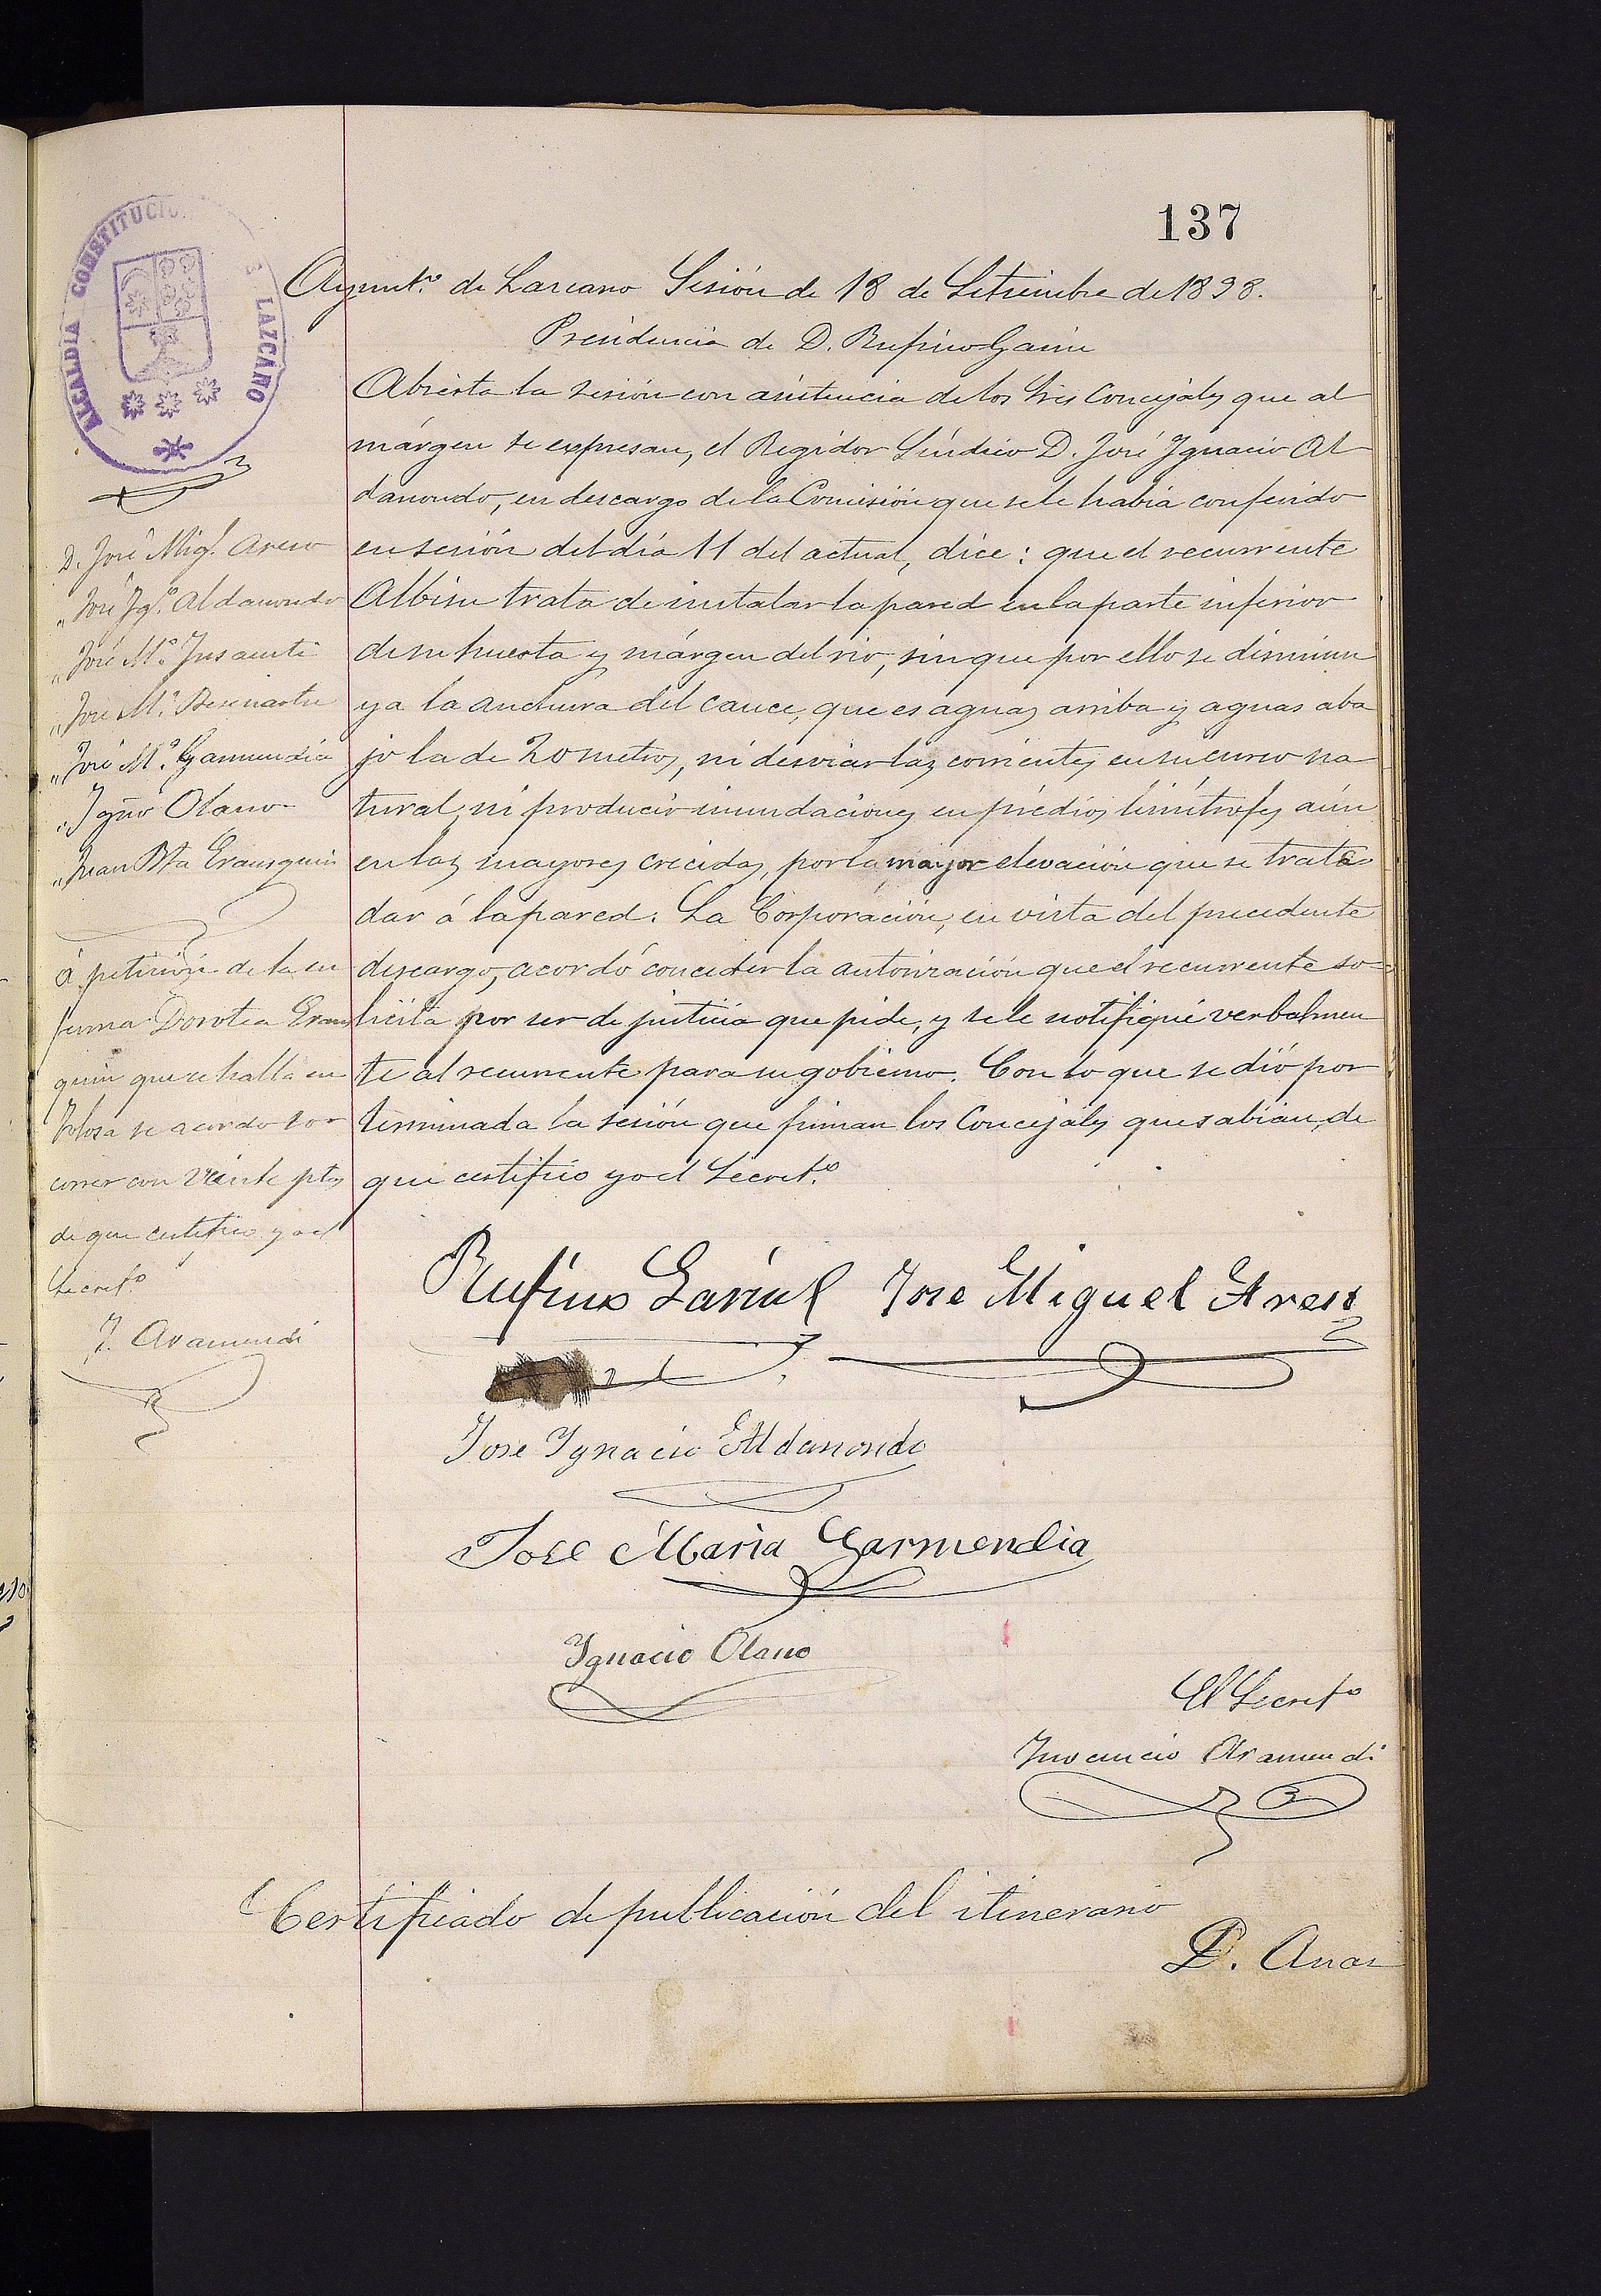 137
ALCALDIA CONSTITUCIO LAZCANO
Ayunt.º de Lazcano Sesión de 18 de Setiembre de 1898.
Presidencia de D. Rufino Garin
Abierta la sesión con asistencia de los Sres Concejales que al
márgen se expresan, el Regidor Síndico D. José Ygnacio Al
damondo, en descargo de la Comisión que se le había conferido
en sesión del día 11 del actual, dice: que el recurrente
Albisu trata de instalar la pared en la parte inferior
de su huerta y márgen del rio, sin que por ello se disminu
ya la anchura del cauce, que es aguas arriba y aguas aba
jo la de 20 metros, ni desviar las corrientes en su curso na
tural, ni producir inundaciones en prédios limítrofes aún
en las mayores crecidas, por la mayor elevación que se trata
dar á la pared. La Corporación, en vista del precedente
descargo, acordó conceder la autorización que el recurrente so-
licita por ser de justicia que pide, y se le notifique verbalmen
te al recurrente para su gobierno. Con lo que se dió por
terminada la sesión que firman los Concejales que sabian, de
que certifico yo el Secret.º
D. José Mig.l Areso
" José Yg.º Aldamondo
" José M.ª Insausti
" José M.ª
" José M.ª Garmendia
" Ygnº Olano
" Juan Bta Erausquin
á petición de la en
ferma Dorotea Eraus
quin que se halla en
Tolosa se acordo soc
correr con veinte ptas
de que certifico yo el
Secret.º
Y. Aramendi
Rufino Garin Jose Miguel Areso
Jose Ygnacio Aldamondo
Jose Maria Garmendia
Ygnacio Olano
El Secretº
Ynocencio Aramendi
Certificado de publicación del itinerario
D.